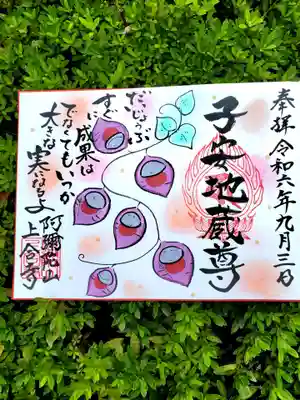 奉拝 令和六年九月三日
子安地蔵尊
だいじょうぶ
すぐに成果は
でなくてもいつか
大きな
実になるよ
阿彌陀山
上合寺